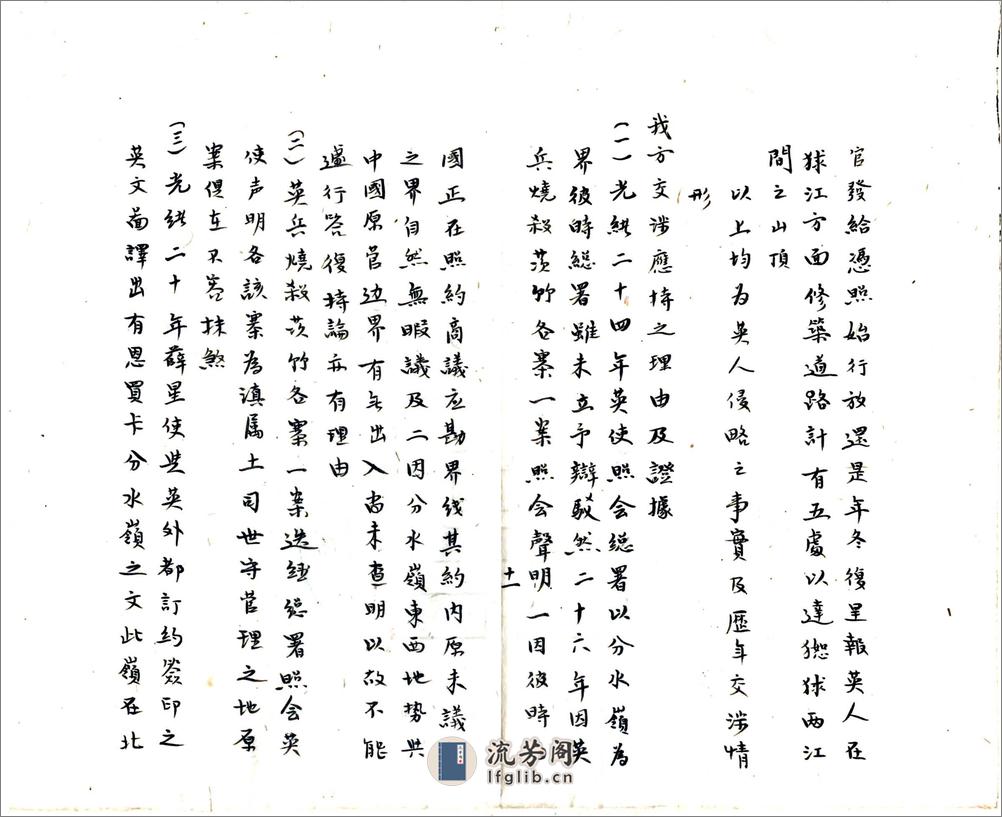 官發給憑照始行放還是年冬復呈報英人在
狱江方面修築道路計有五處以達㺐狱兩江
間之山頂
以上均为英人侵略之事實及歷年交涉情
形
我方交涉應持之理由及證據
(一)光緒二十四年英使照会總署以分水嶺为
界彼時総署雖未立予辯駁然二十六年因英
兵燒殺茨竹各寨一案照会聲明一因彼時
十一
國正在照約商議应勘界线其約内原未議
之界自然無暇議及二因分水嶺東西地势与
中國原管边界有无出入尚未查明以故不能
遽行答復持論亦有理由
(二)英兵燒殺茨竹各寨一案迭經總署照会英
使声明各該寨為滇属土司世守管理之地原
案俱在不容抹煞
(三)光緒二十年薛星使与英外部訂約簽印之
英文圖譯出有恩買卡分水嶺之文此嶺在北
流芳阁
lfglib.cn